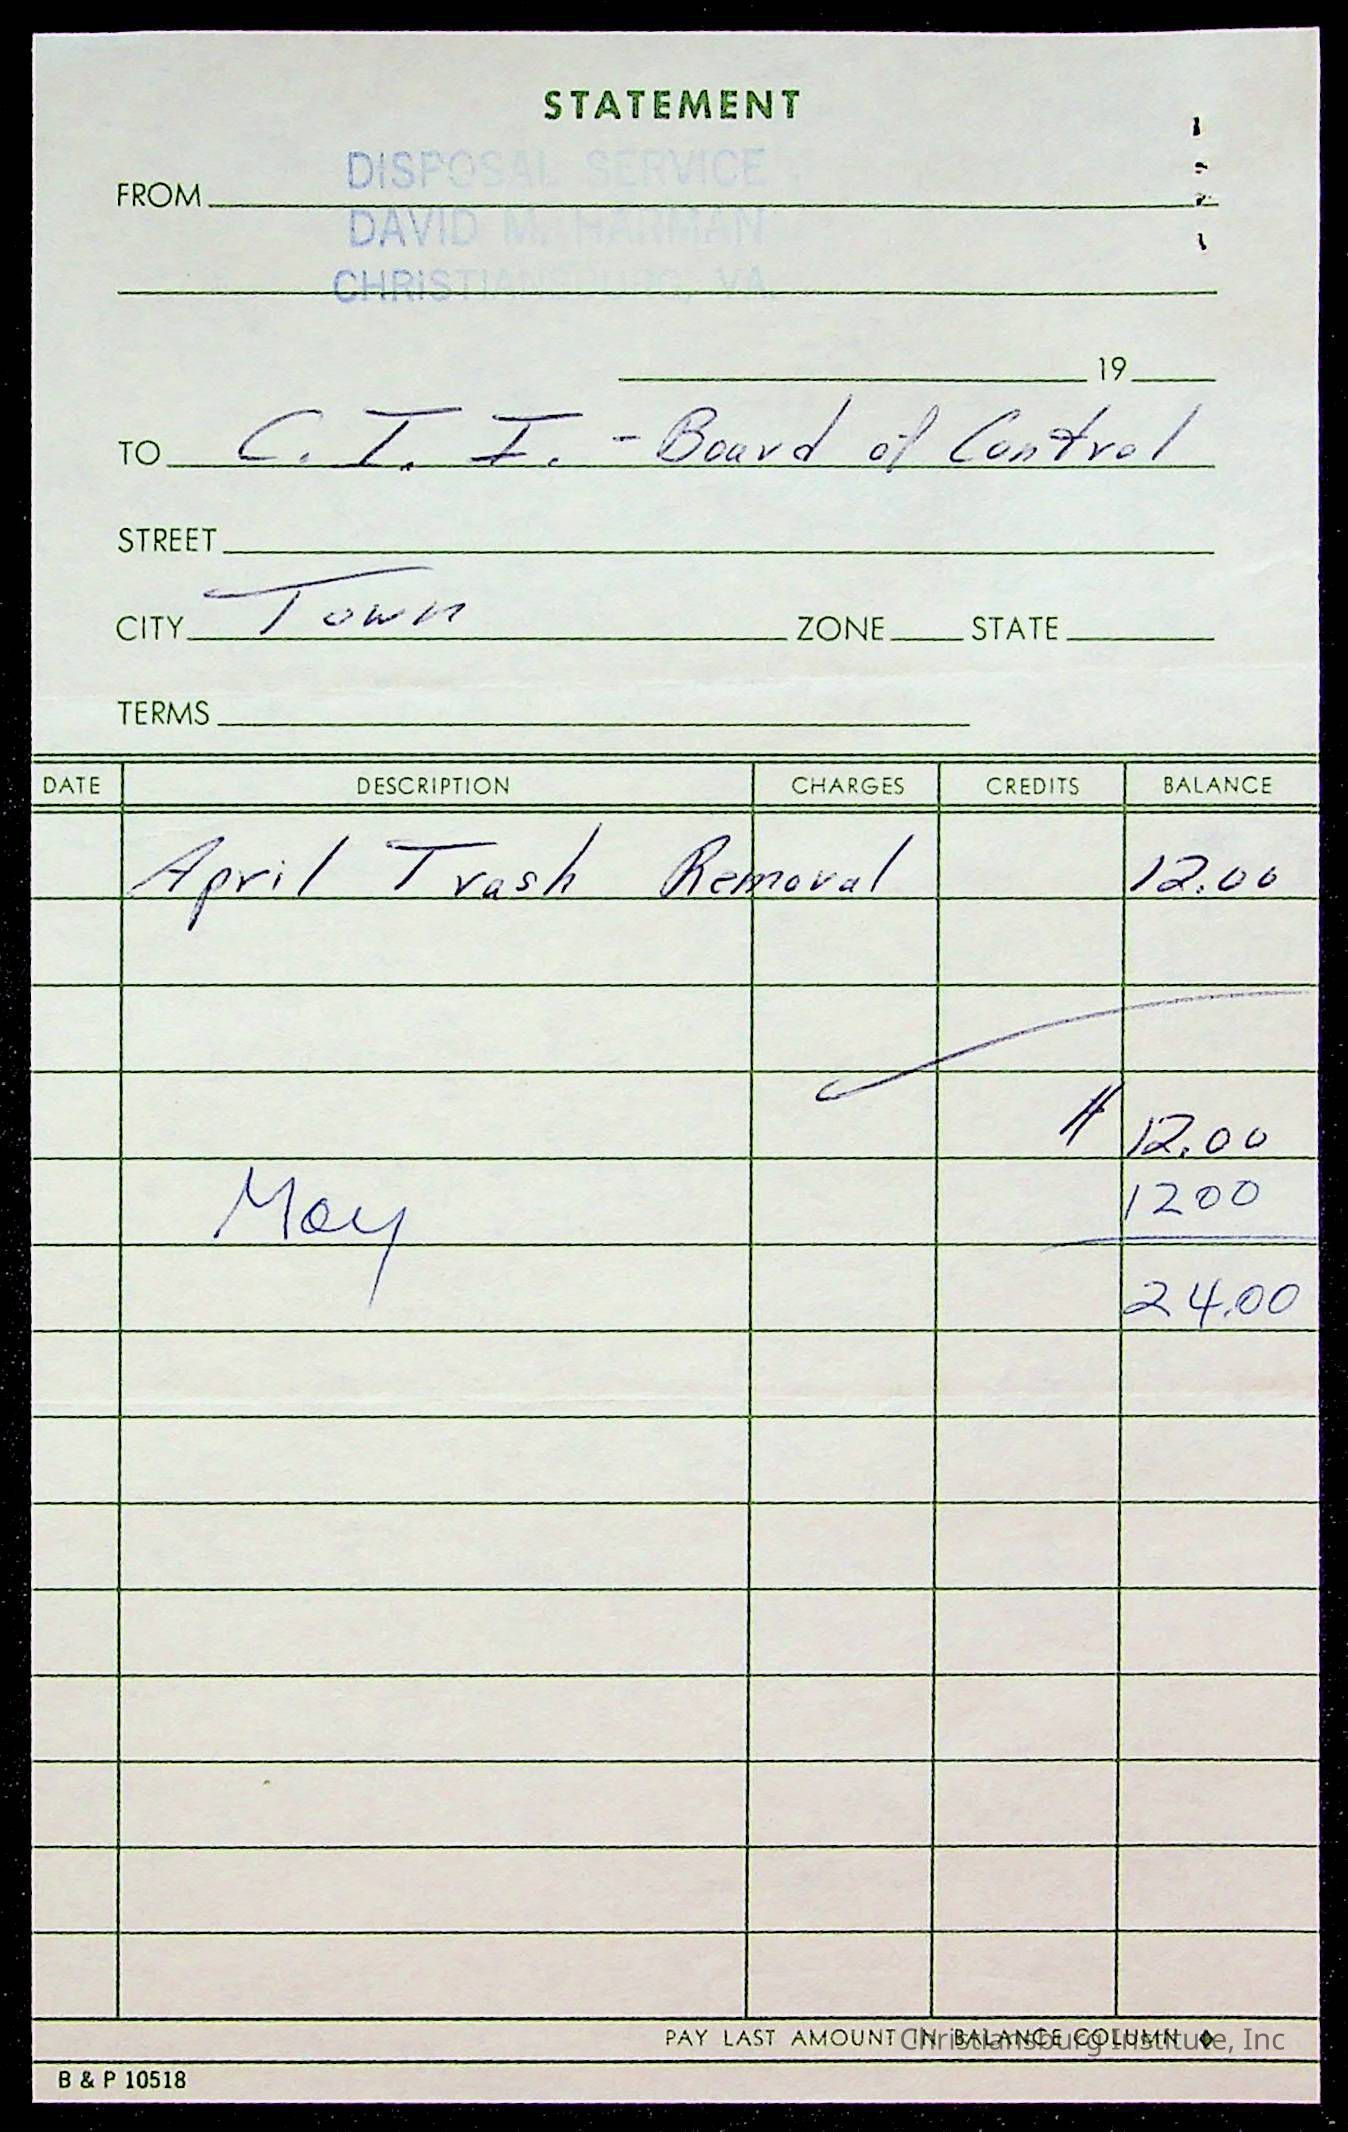 STATEMENT
DISPOSAL SERVICE
FROM
DAVID M. HARMAN
CHRISTIANSBURG, VA.
19
TO C. I. I. - Board of Control
STREET
CITY Town ZONE STATE
TERMS
DATE DESCRIPTION CHARGES CREDITS BALANCE
April Trash Removal 12.00
$ 12.00
May 1200
24.00
PAY LAST AMOUNT IN BALANCE COLUMN
Christiansburg Institute, Inc
B & P 10518